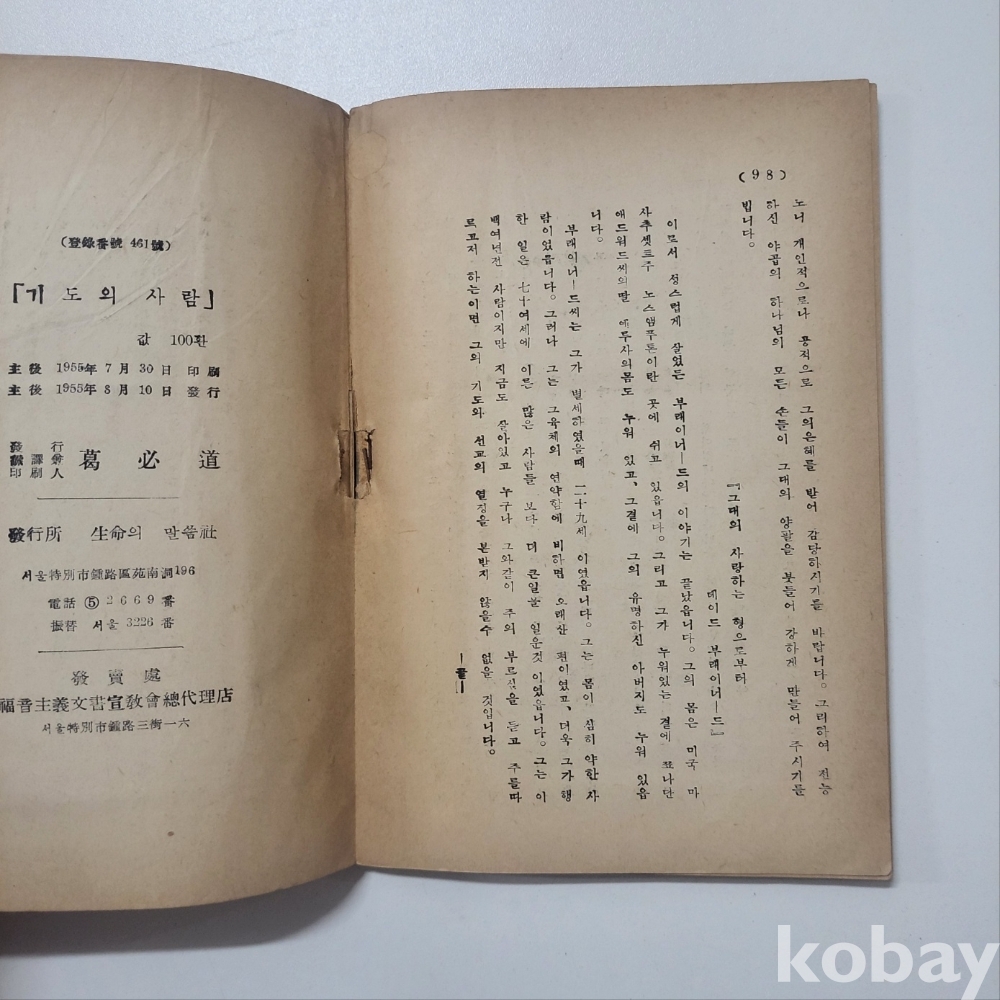 (98)
노니 개인적으로나 공적으로 그의은혜를 받어 감당하시기를 바랍니다。그리하여 전능
하신 야곱의 하나님의 모든 손들이 그대의 양팔을 붓들어 강하게 만들어 주시기를
빕니다。
『그대의 사랑하는 형으로부터
데이드 부래이너—드』
이로서 성스럽게 살었든 부래이너—드의 이야기는 끝났읍니다。그의 몸은 미국 마
사추셋트주 노스앰푸톤이란 곳에 쉬고 있읍니다。그리고 그가 누워있는 곁에 죠나단
애드워드씨의딸 에루사의몸도 누워 있고、그곁에 그의 유명하신 아버지도 누워 있읍
니다。
부래이너—드씨는 그가 별세하였을때 二十九세 이였읍니다。그는 몸이 심히 약한 사
람이였읍니다。그러나 그는 그육체의 연약함에 비하면 오래산 편이였고、더욱 그가행
한 일은 七十여세에 이른 많은 사람들 보다 더 큰일을 일운것 이였읍니다。그는 이
백여년전 사람이지만 지금도 살아있고 누구나 그와같이 주의 부르심을 듣고 주를따
르고저 하는이면 그의 기도와 선교의 열정을 본받지 않을수 없을 것입니다。
—끝—
(登錄番號 461號)
「기도의 사람」
값 100환
主後 1955年 7月 30日 印刷
主後 1955年 8月 10日 發行
發行
飜譯兼
印刷人
葛必道
發行所 生命의 말씀社
서울特別市鍾路區苑南洞196
電話 ⑤ 2669番
振替 서울 3226番
發賣處
福音主義文書宣敎會總代理店
서울特別市鍾路三街一六
kobay